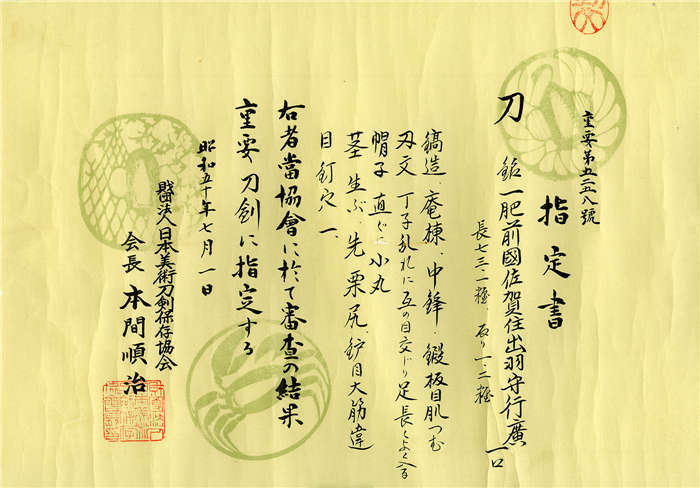 重要第五二二八號
指定書
刀 銘 一肥前國佐賀住出羽守行廣 一口
長七三・一糎、反り一・二糎
鎬造、庵棟、中鋒、鍛板目肌つむ
刃文 丁子乱れに互の目交じり足長くよく入る
帽子 直ぐに小丸
茎 生ぶ、先栗尻、鈩目大筋違
目釘穴 一、
右者當協會に於て審査の結果
重要刀剣に指定する
昭和五十年七月一日
財団法人日本美術刀剣保存協会
会長 本間順治